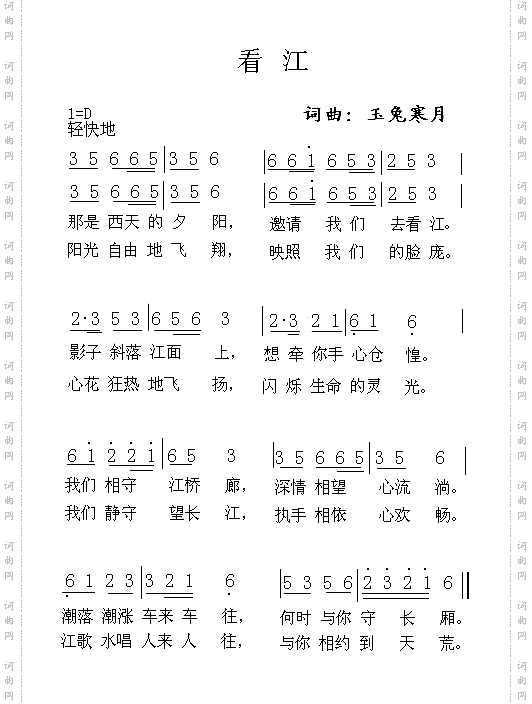 看 江
1=D
词曲：玉兔寒月
轻快地
3 5 6 6 5 | 3 5 6 | 6 6 1̇ 6 5 3 | 2 5 3 |
3 5 6 6 5 | 3 5 6 | 6 6 1̇ 6 5 3 | 2 5 3 |
那是 西天 的 夕 阳， 邀请 我 们 去看 江。
阳光 自由 地 飞 翔， 映照 我 们 的脸 庞。
2·3 5 3 | 6 5 6 3 | 2·3 2 1 | 6̣ 1 6̣ |
影子 斜落 江面 上， 想 牵 你手 心仓 惶。
心花 狂热 地飞 扬， 闪 烁 生命 的灵 光。
6 1̇ 2̇ 2̇ 1̇ | 6 5 3 | 3 5 6 6 5 | 3 5 6 |
我们 相守 江桥 廊， 深情 相望 心流 淌。
我们 静守 望长 江， 执手 相依 心欢 畅。
6̣ 1 2 3 | 3 2 1 6̣ | 5 3 5 6 | 2̇ 3̇ 2̇ 1̇ 6 ‖
潮落 潮涨 车来 车 往， 何时 与你 守 长 厢。
江歌 水唱 人来 人 往， 与你 相约 到 天 荒。
词曲网
词曲网
词曲网
词曲网
词曲网
词曲网
词曲网
词曲网
词曲网
词曲网
词曲网
词曲网
词曲网
词曲网